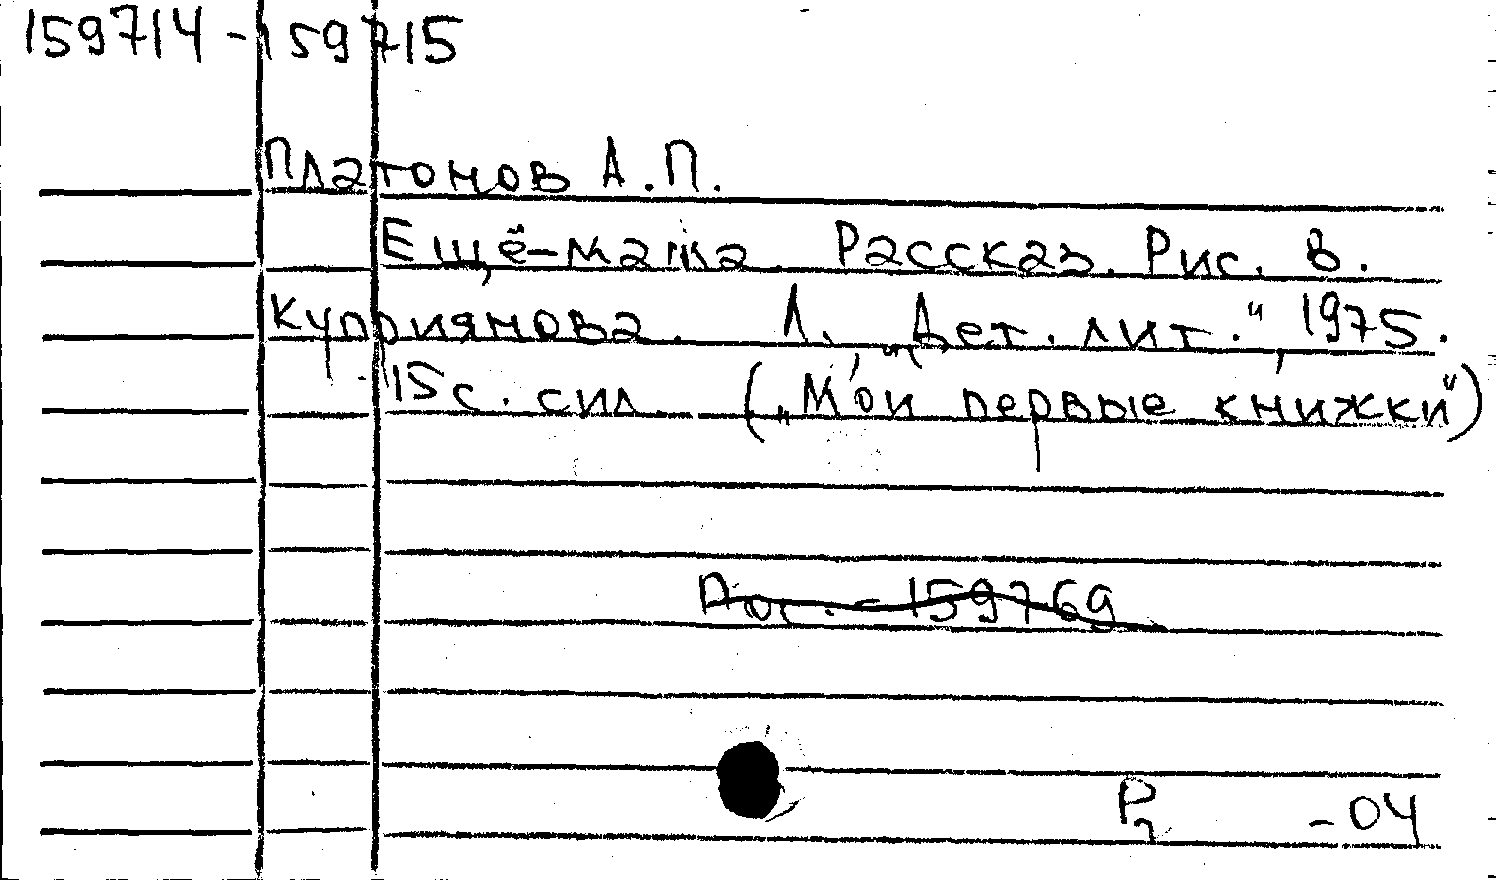 159714-159715
Платонов А.П.
Ещё-мама. Рассказ. Рис. В.
Куприянова. Л. „Дет. лит.“, 1975.
15с. сил. („Мои первые книжки“)
Дос. - 159769
Р2 -04